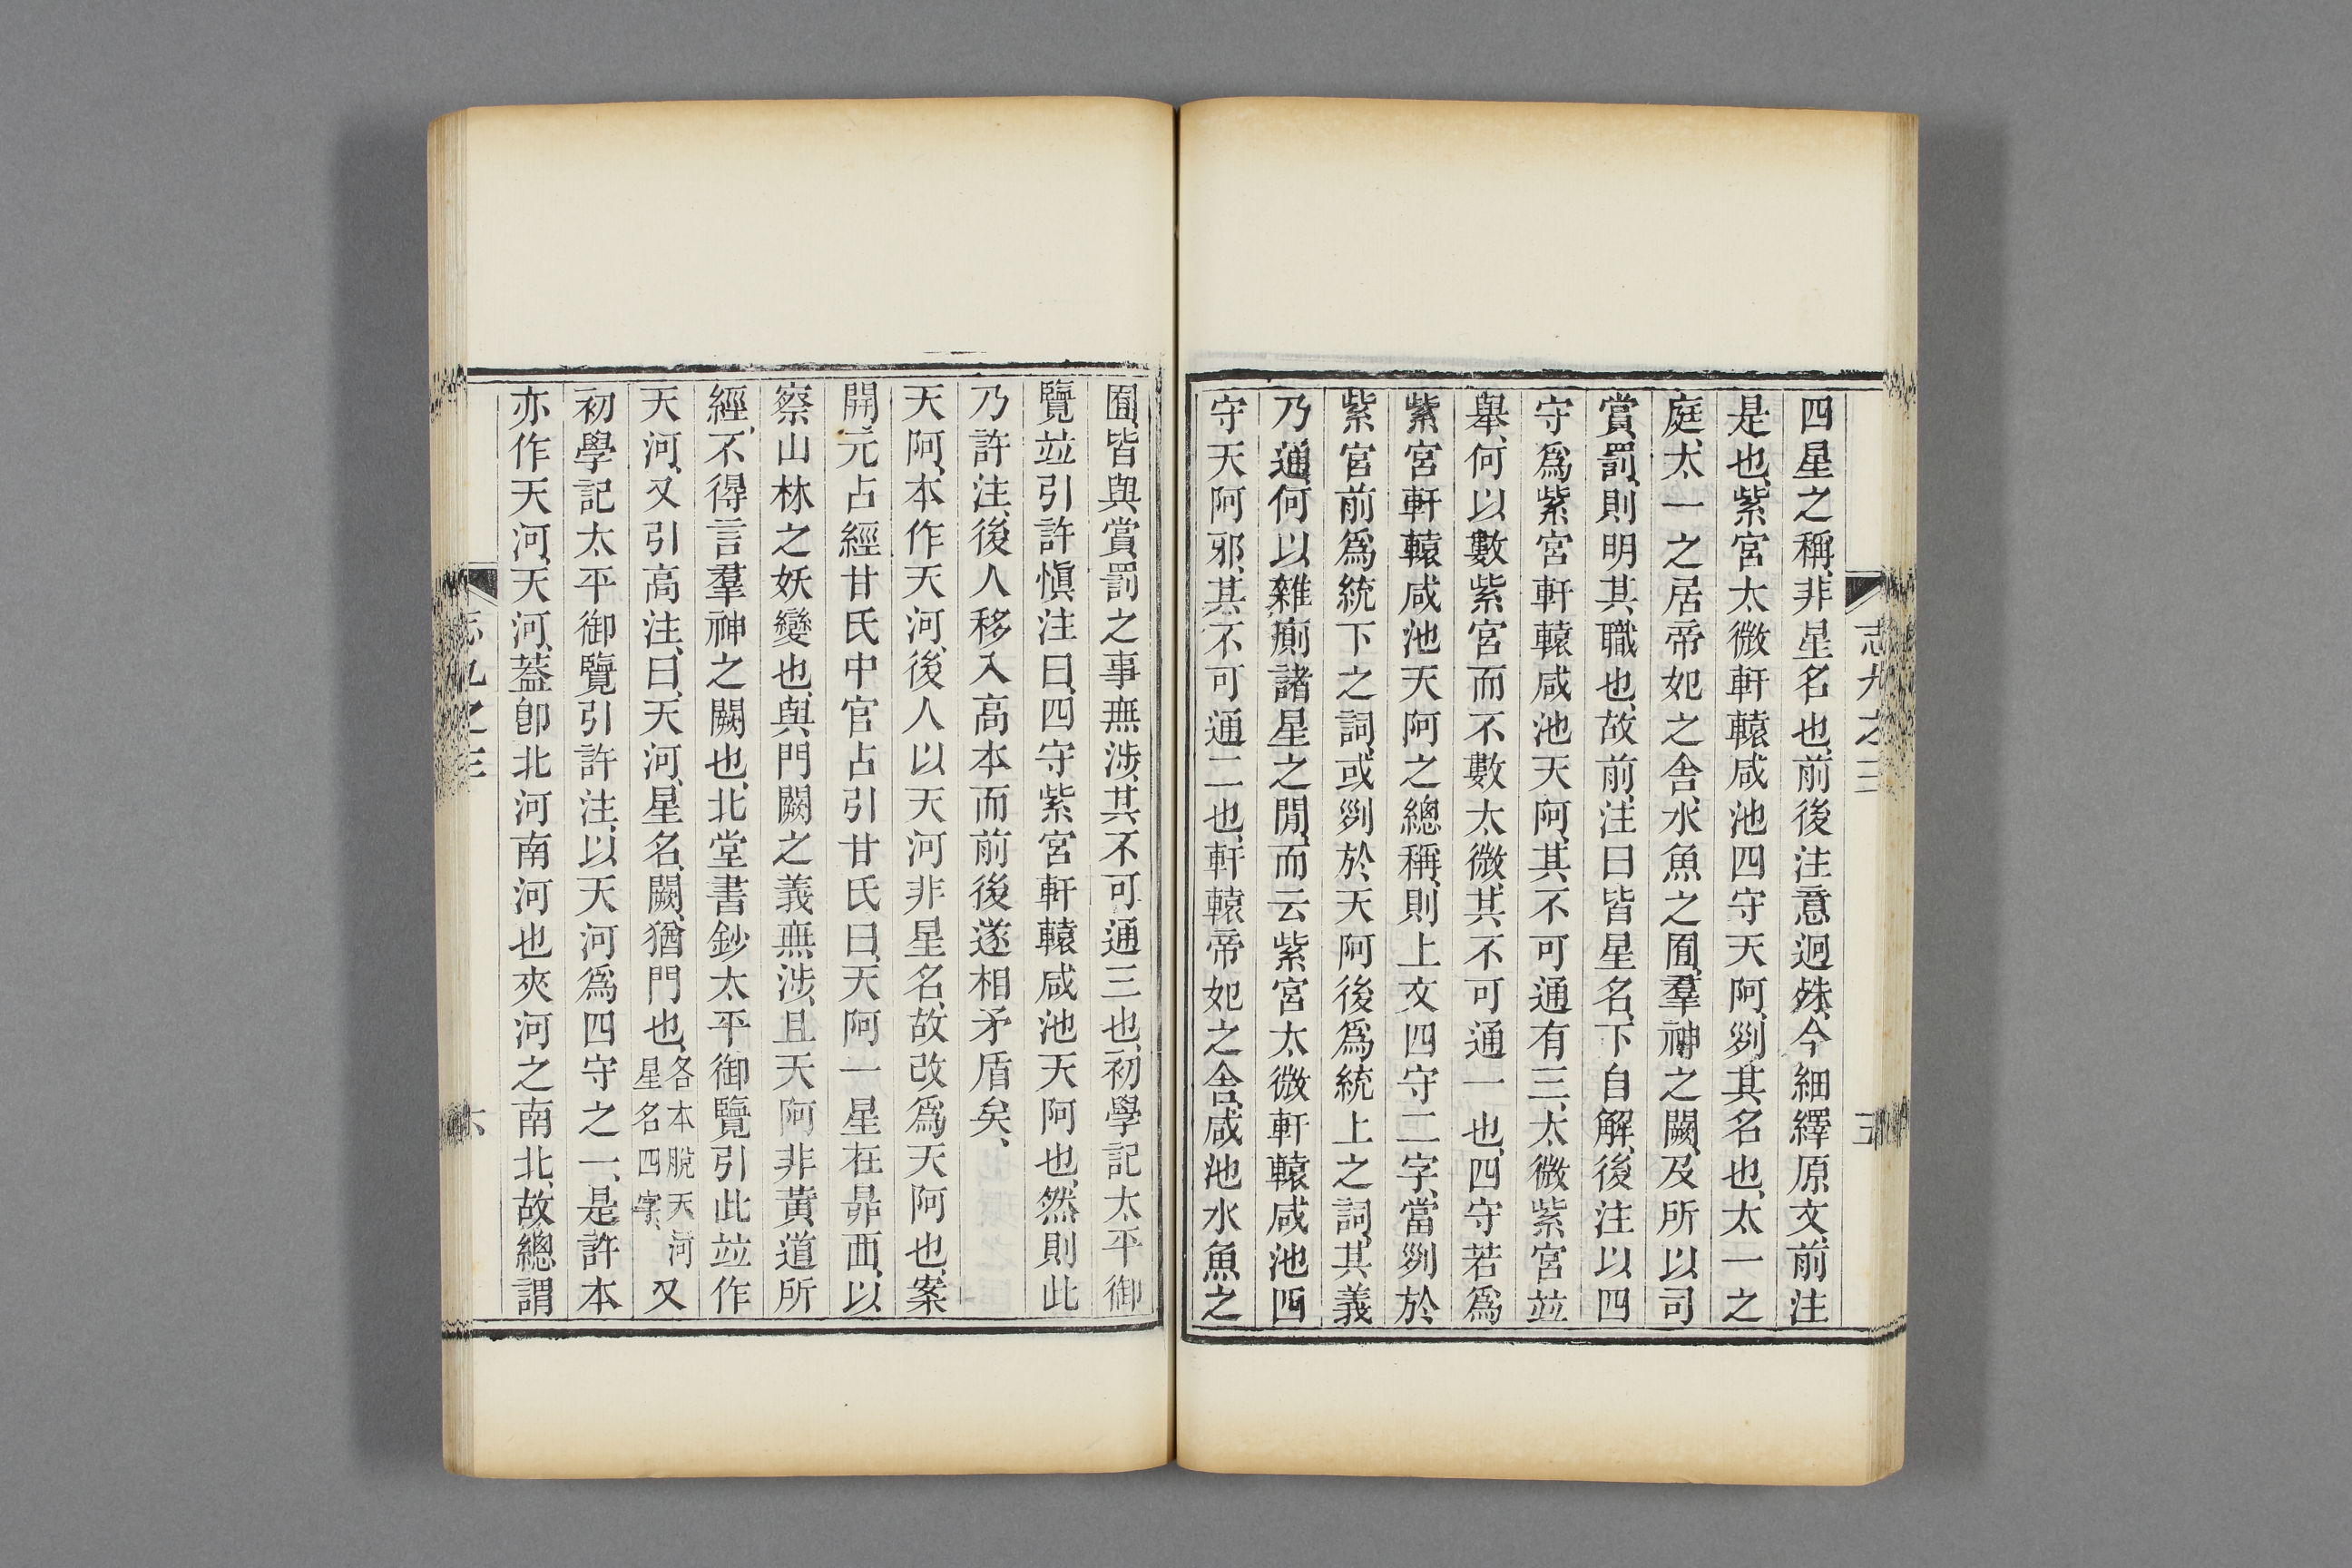 志九之三
五
四星之稱、非星名也、前後注意迥殊、今細繹原文、前注
是也、紫宮太微軒轅咸池四守天阿、列其名也、太一之
庭、太一之居、帝妃之舍、水魚之囿、羣神之闕、及所以司
賞罰、則明其職也、故前注曰皆星名、下自解、後注以四
守爲紫宮軒轅咸池天阿、其不可通有三、太微紫宮竝
舉、何以數紫宮而不數太微、其不可通一也、四守若爲
紫宮軒轅咸池天阿之總稱、則上文四守二字、當列於
紫宮前爲統下之詞、或列於天阿後爲統上之詞、其義
乃通、何以雜廁諸星之閒、而云紫宮太微軒轅咸池四
守天阿邪、其不可通二也、軒轅帝妃之舍、咸池水魚之
囿、皆與賞罰之事無涉、其不可通三也、初學記太平御
覽竝引許愼注曰、四守紫宮軒轅咸池天阿也、然則此
乃許注、後人移入高本而前後遂相矛盾矣、
天阿、本作天河、後人以天河非星名、故改爲天阿也、案
開元占經甘氏中官占引甘氏曰、天阿一星在昴西、以
察山林之妖變也、與門闕之義無涉、且天阿非黃道所
經、不得言羣神之闕也、北堂書鈔太平御覽引此竝作
天河、又引高注曰、天河、星名、闕、猶門也、各本脫天河星名四字、又
初學記太平御覽引許注、以天河爲四守之一、是許本
亦作天河、天河、蓋卽北河南河也夾河之南北、故總謂
志九之三
六